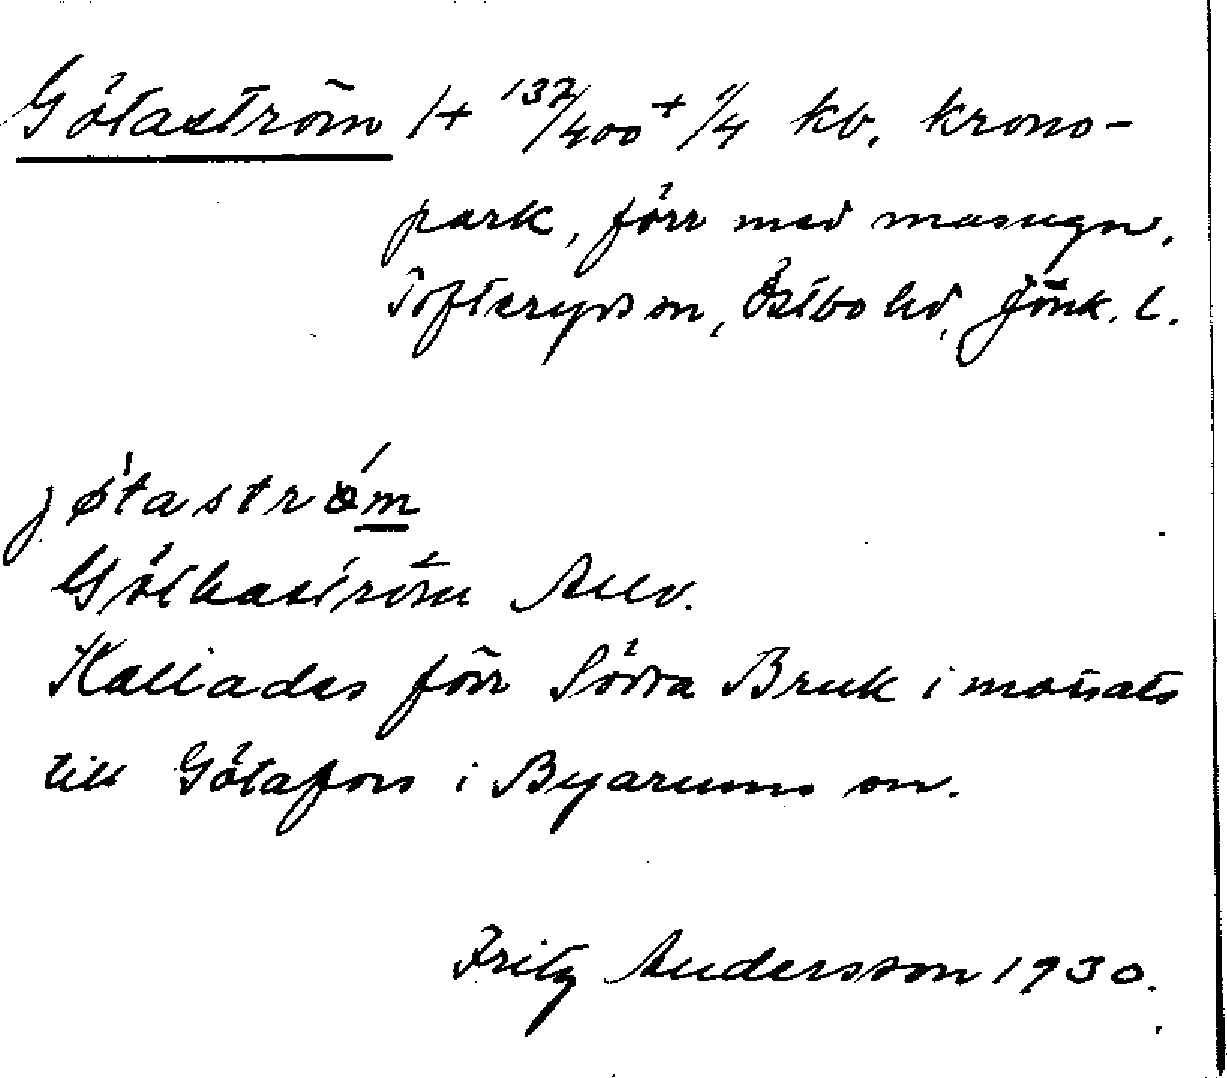 Götaström 1+ 132/400 + 1/4 kb. krono-
park, förr med masugn.
Tofteryds sn, Östbo hd, Jönk. l.
jøtastrøm
Göthaström Allv.
Kallades förr Södra Bruk i motsats
till Götafors i Byarums sn.
Fritz Andersson 1930.